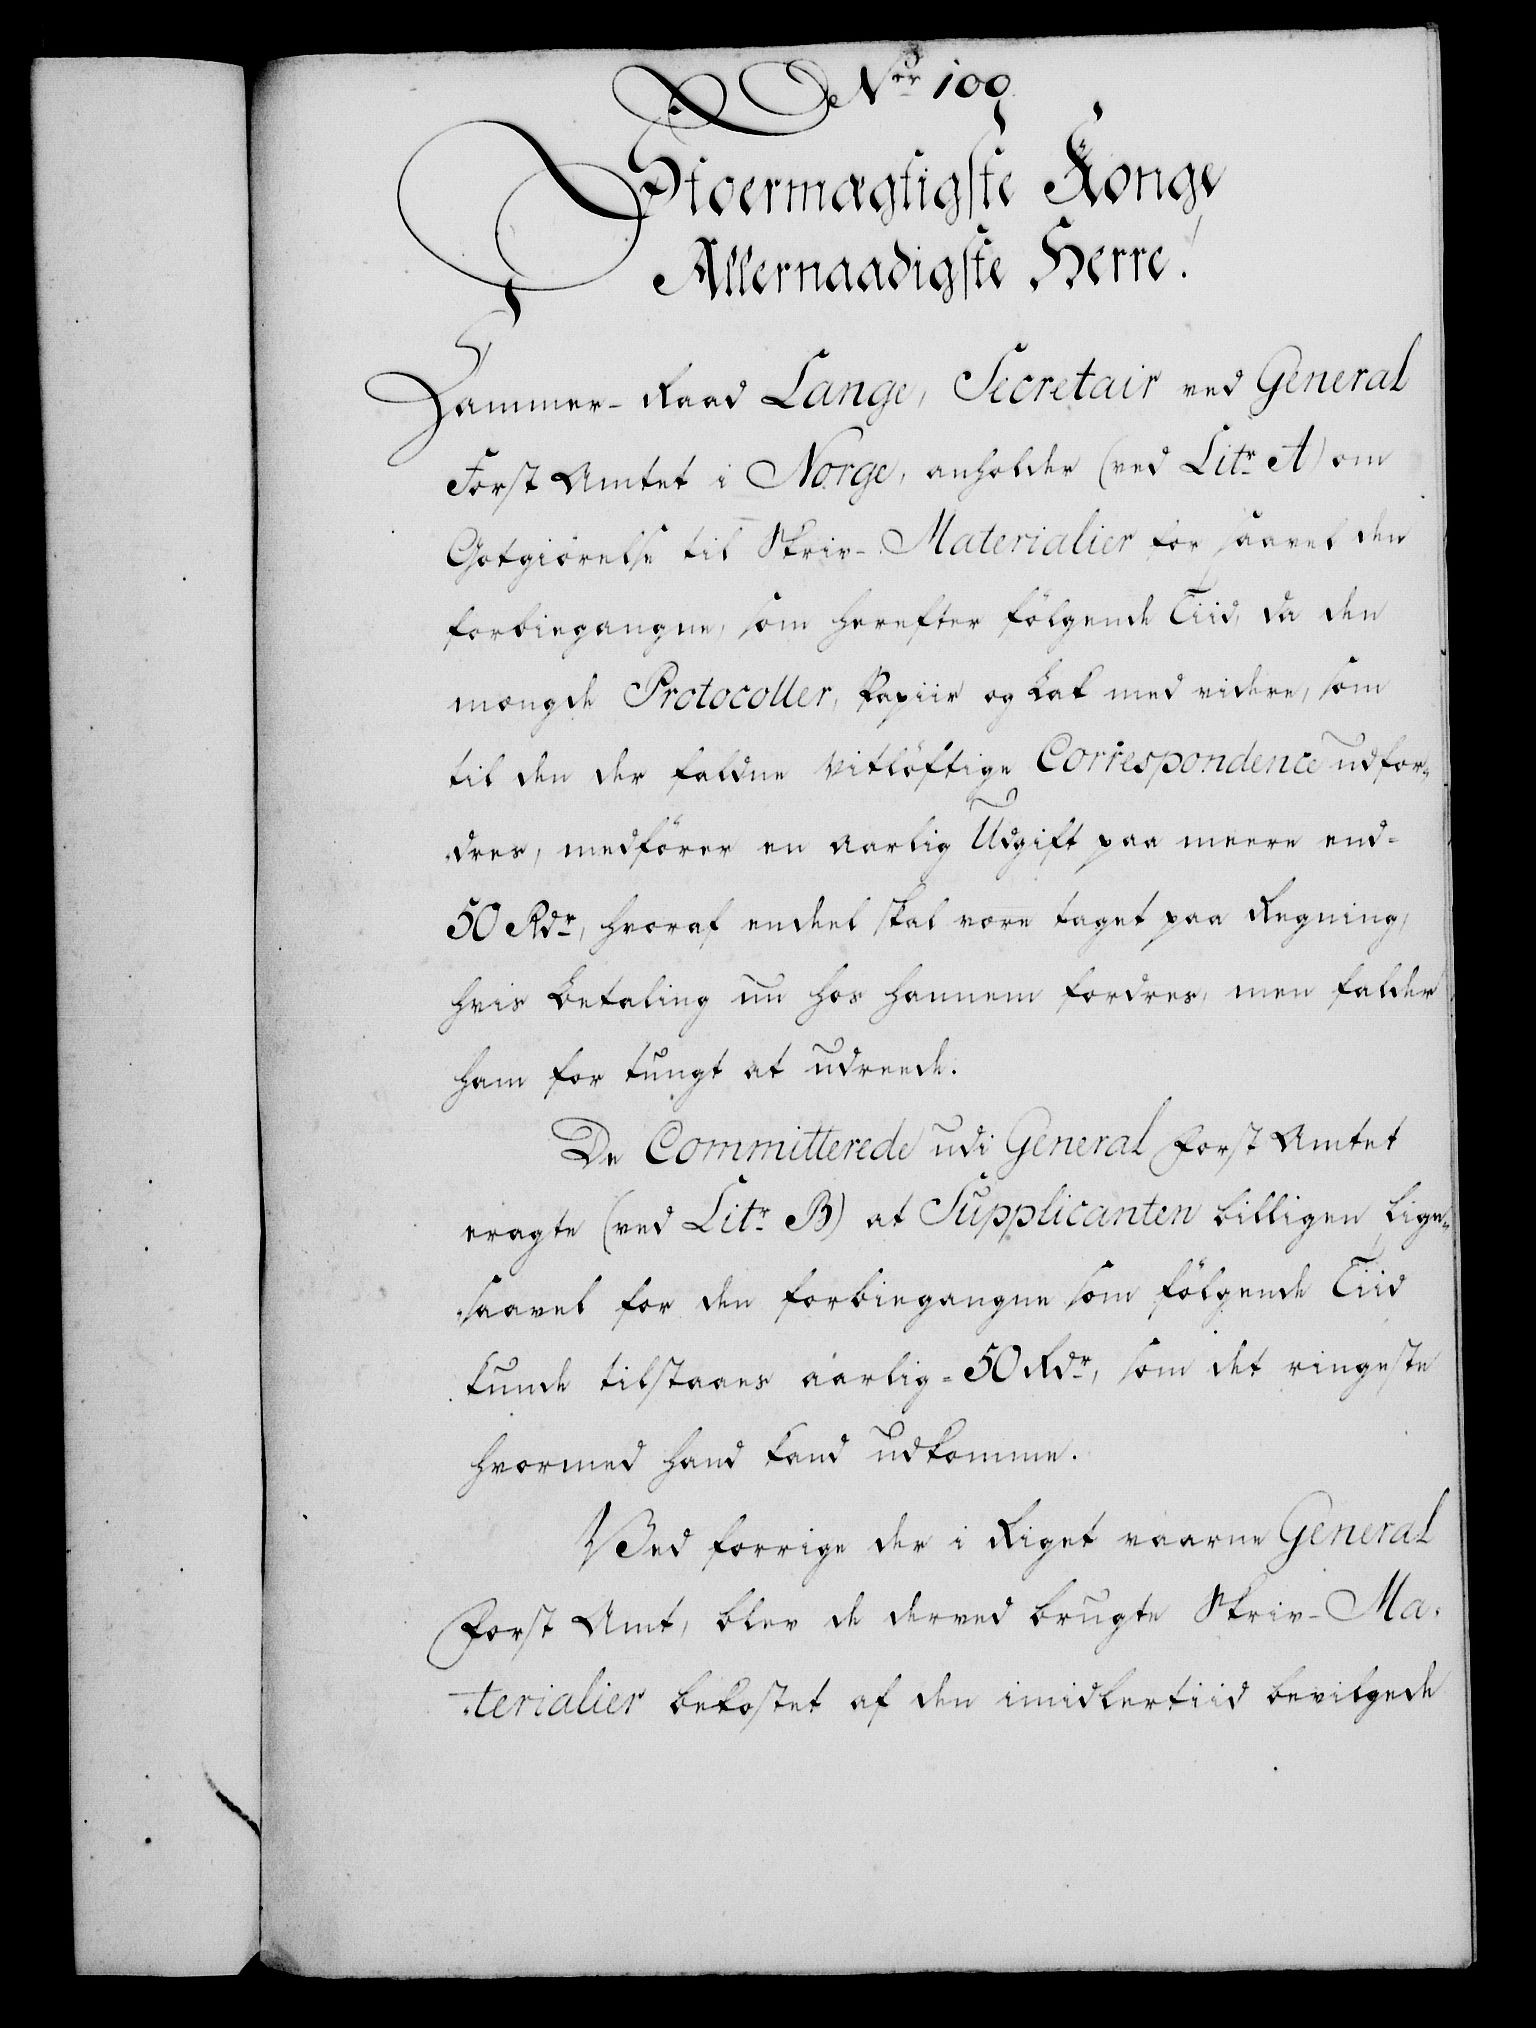 Nr 109
Stoermægtigste Konge
Allernaadigste Herre!
Kammer-Raad Lange, Secretair ved General
Forst Amtet i Norge, anholder (ved Litr A) om
Gotgiörelse til Skriv-Materialier for saavel den
forbiegangne, som herefter fölgende Tiid, da den
mængde Protocoller, Papiir og Lak med videre, som
til den der faldne vitlöftige Correspondence udfor-
dres, medförer en aarlig Udgift paa meere end
50 Rdr, hvoraf endeel skal være taget paa Regning,
hvis Betaling nu hos hannem fordres, men falder
ham for tungt at udreede.
De Committerede udi General Forst Amtet
eragte (ved Litr B) at Supplicanten billigen lige-
saavel for den forbiegangne som fölgende Tiid
kunde tilstaaes aarlig 50 Rdr, som det ringeste
hvormed hand kand udkomme.
Ved forrige der i Riget vaarne General
Forst Amt, blev de derved brugte Skriv-Ma-
terialier bekostet af den imidlertiid bevilgede